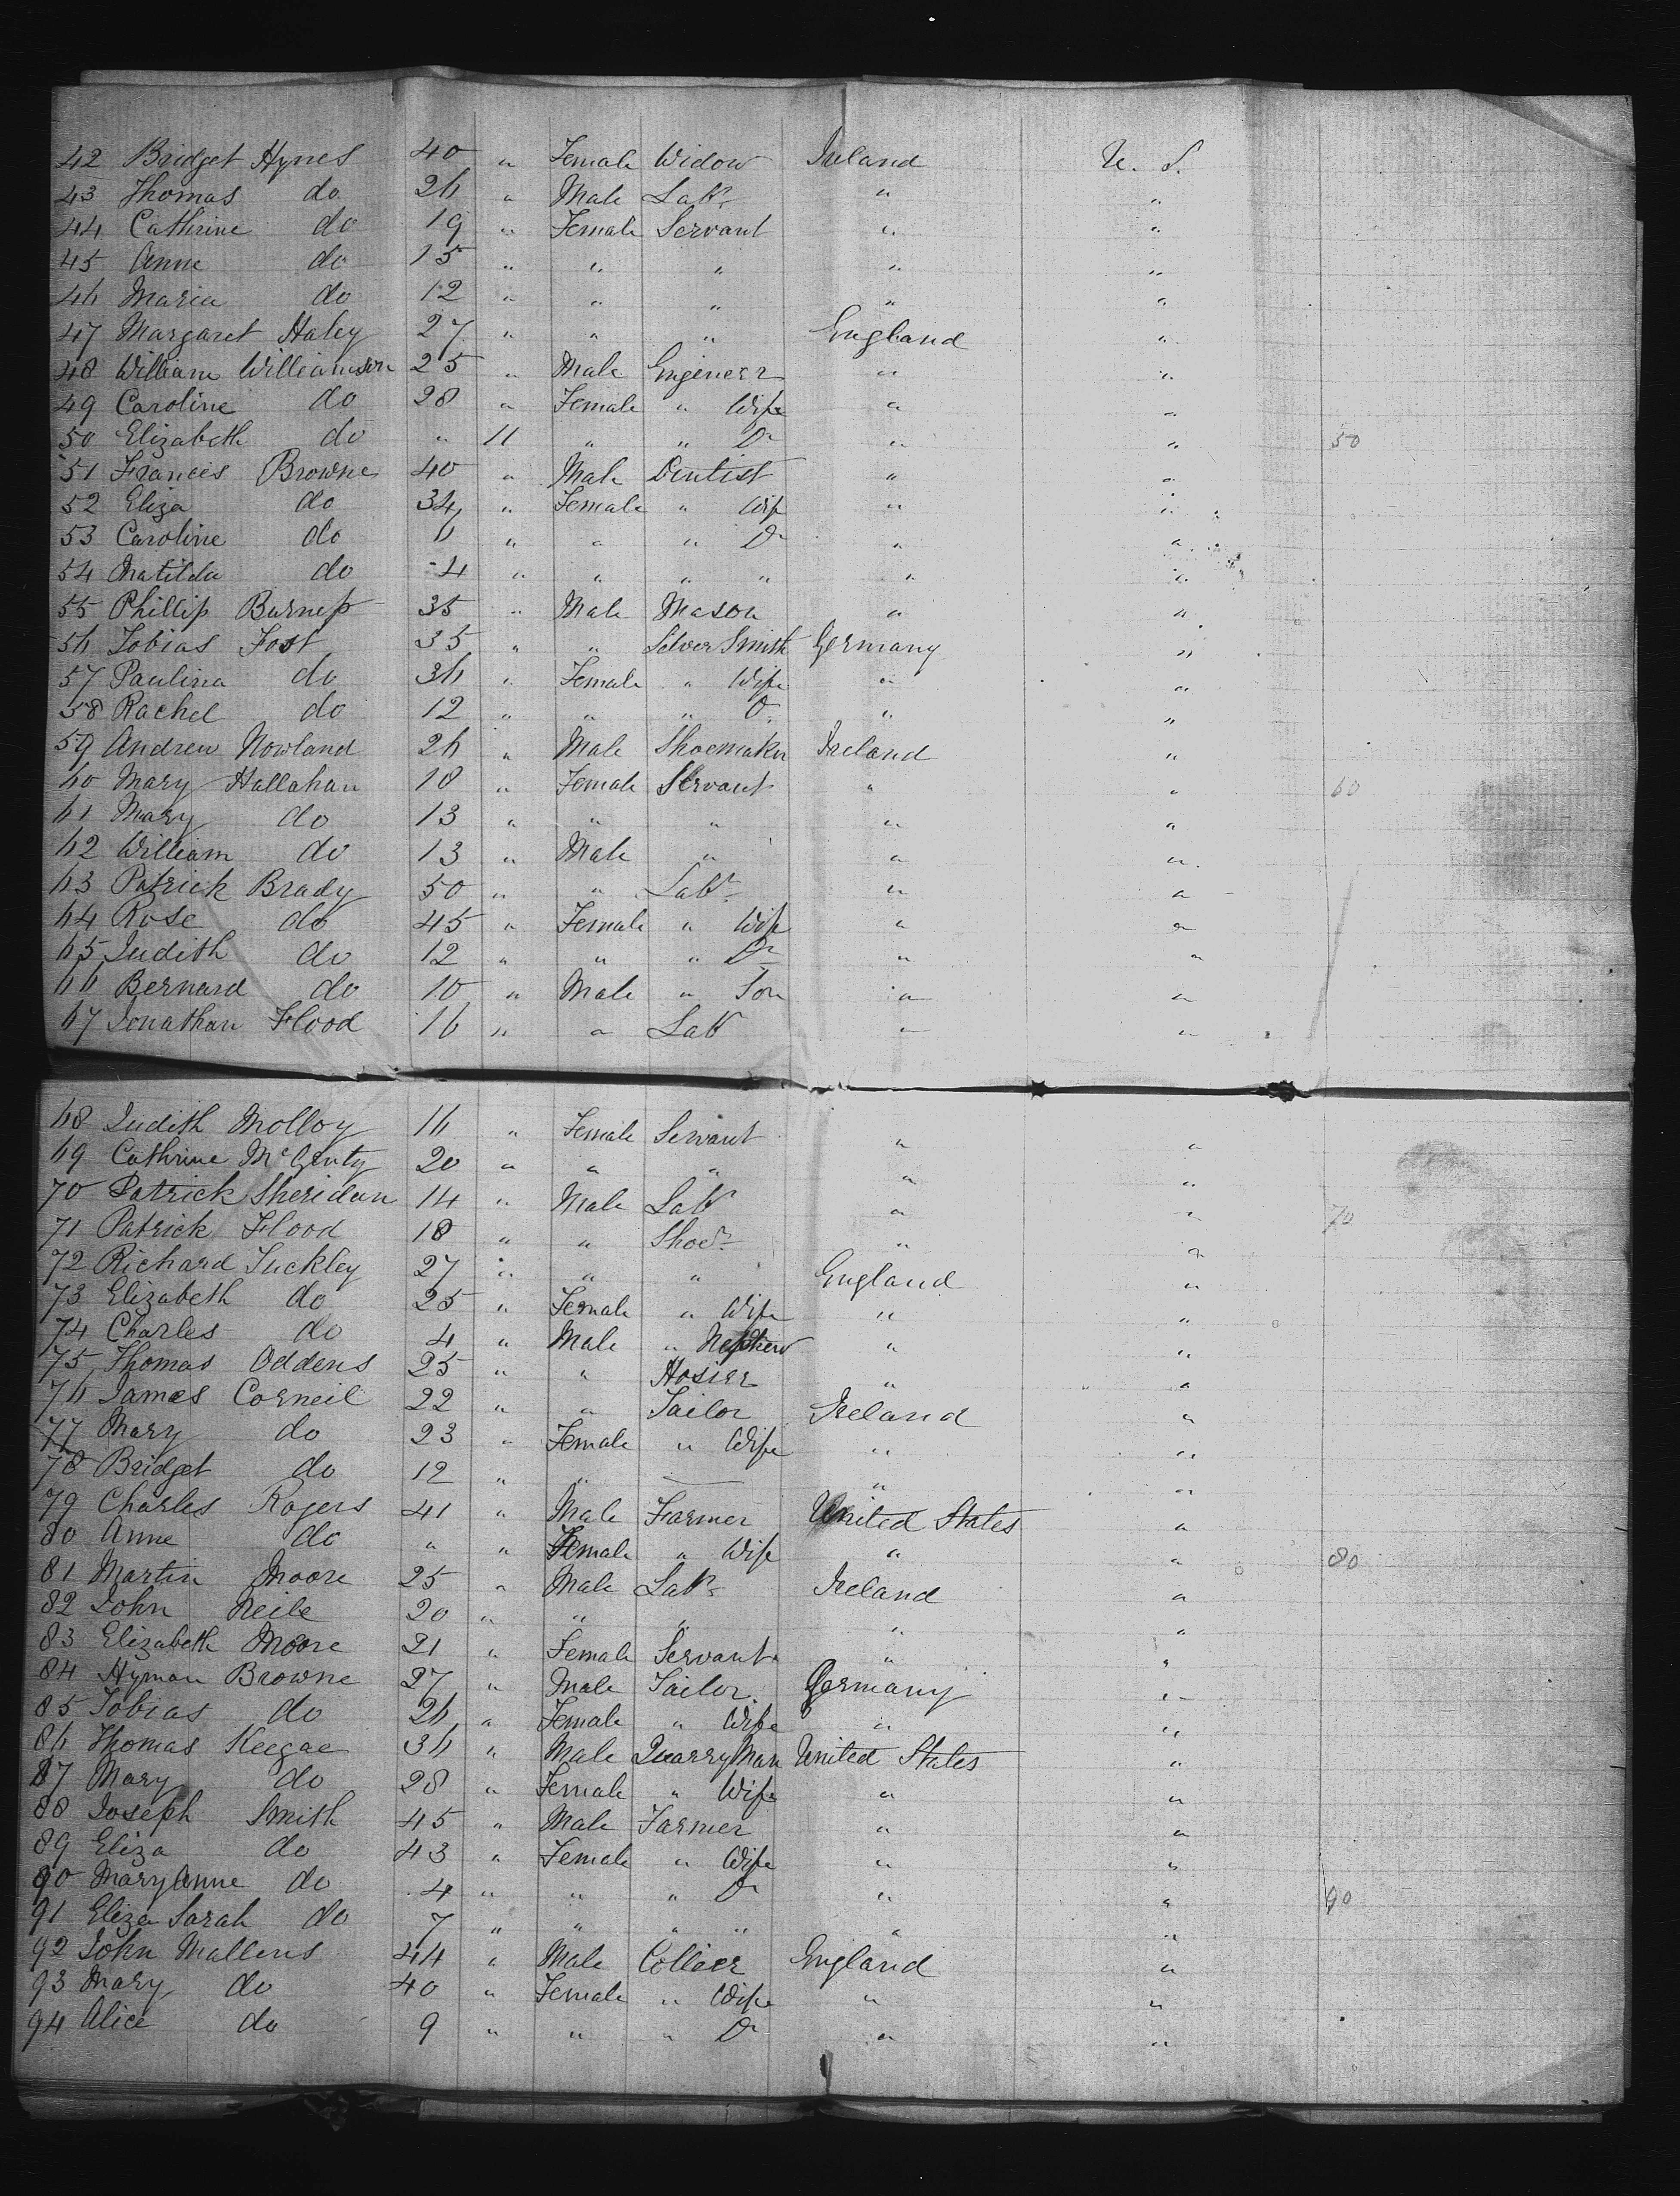 42 Bridget Hynes 40 " Female Widow Ireland U. S.
43 Thomas do 26 " Male Labr " "
44 Cathrine do 19 " Female Servant " "
45 Anne do 15 " " " " "
46 Maria do 12 " " " " "
47 Margaret Haley 27 " " " England "
48 William Williamson 25 " Male Engineer " "
49 Caroline do 28 " Female " Wife " "
50 Elizabeth do " 11 " " Dr " " 50
51 Frances Browne 40 " Male Dentist " "
52 Eliza do 34 " Female " Wife " "
53 Caroline do 6 " " " Dr " "
54 Matilda do 4 " " " " " "
55 Phillip Burness 35 " Male Mason " "
56 Tobias Fost 35 " " Silver Smith Germany "
57 Paulina do 36 " Female " Wife " "
58 Rachel do 12 " " " D. " "
59 Andrew Nowland 26 " Male Shoemaker Ireland "
60 Mary Hallahan 18 " Female Servant " " 60
61 Mary do 13 " " " " "
62 William do 13 " Male " " "
63 Patrick Brady 50 " " Labr " "
64 Rose do 45 " Female " Wife " "
65 Judith do 12 " " " Dr " "
66 Bernard do 10 " Male " Son " "
67 Jonathan Flood 16 " " Labr " "
68 Judith Molloy 16 " Female Servant " "
69 Cathrine McGinty 20 " " " " "
70 Patrick Sheridan 14 " Male Labr " " 70
71 Patrick Flood 18 " " Shoer " "
72 Richard Tuckley 27 " " " England "
73 Elizabeth do 25 " Female " Wife " "
74 Charles do 4 " Male " Nephew " "
75 Thomas Oddens 25 " " Hosier " "
76 James Corneil 22 " " Tailor Ireland "
77 Mary do 23 " Female " Wife " "
78 Bridget do 12 " " — " "
79 Charles Rogers 41 " Male Farmer United States "
80 Anne do " " Female " Wife " " 80
81 Martin Moore 25 " Male Labr Ireland "
82 John Neile 20 " " " " "
83 Elizabeth Moore 21 " Female Servant " "
84 Hyman Browne 27 " Male Tailor Germany "
85 Tobias do 26 " Female " Wife " "
86 Thomas Keegae 36 " Male Quarry Man United States "
87 Mary do 28 " Female " Wife " "
88 Joseph Smith 45 " Male Farmer " "
89 Eliza do 43 " Female " Wife " "
90 Mary Anne do 4 " " " Dr " " 90
91 Eliza Sarah do 7 " " " " " "
92 John Mallens 44 " Male Collier England "
93 Mary do 40 " Female " Wife " "
94 Alice do 9 " " " Dr " "